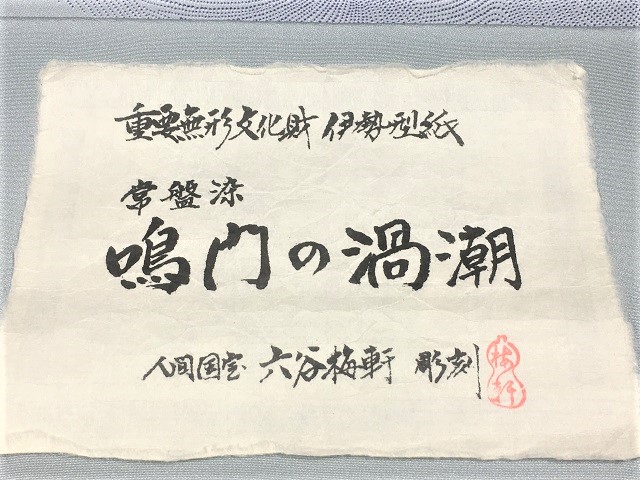 重要無形文化財 伊勢型紙
常盤染
鳴門の渦潮
人間国宝 六谷梅軒 彫刻
梅軒